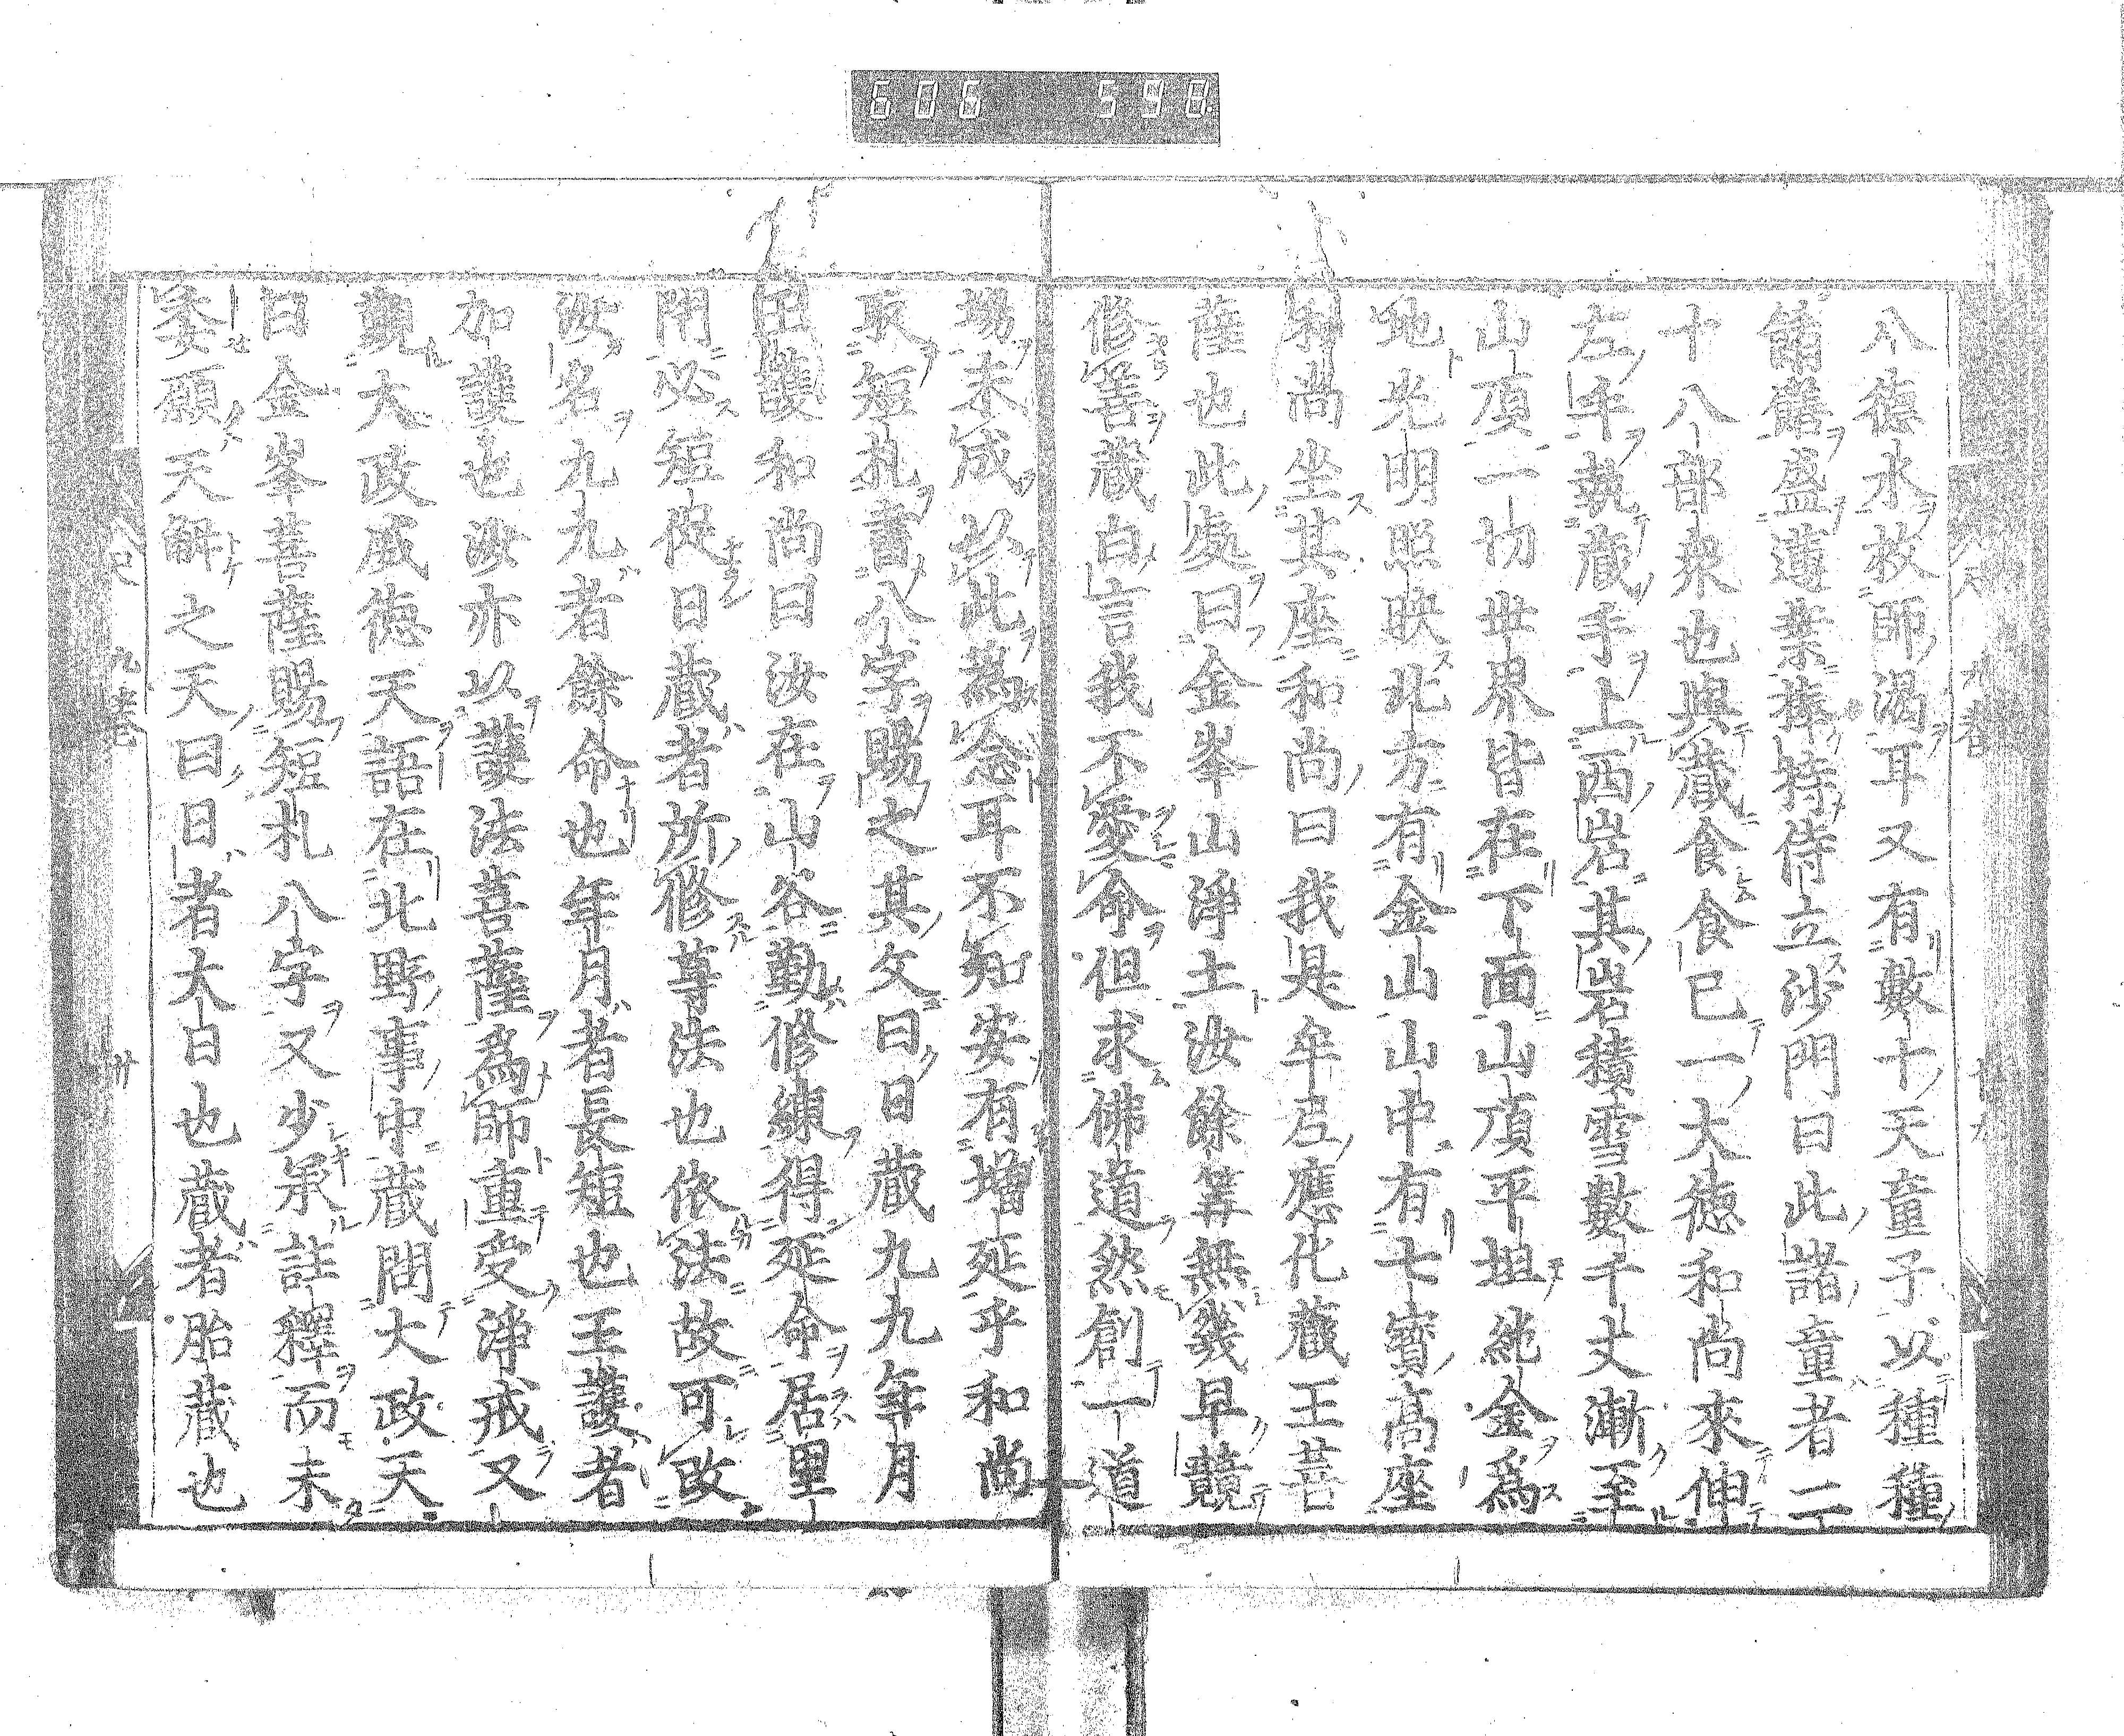 606 598
八德水救師渇耳又有數十天童子以種種
餚饍盛蓮葉捧持侍立沙門曰此諸童者二
十八部衆也與藏食食已一大德和尚來伸
左手執藏手上西岩其岩積雪數千丈漸至
山頂一切世界皆在下面山頂平坦純金爲
地光明照映北方有金山山中有七寳高座
和尚坐其座和尚曰我是牟尼應化藏王菩
薩也此處曰金峯山淨土汝餘筭無幾早競
修善藏白言我不愛命但求佛道然創一道
場未成以此爲念耳不知安有增延乎和尚
取短札書八字賜之其文曰日藏九九年月
王護和尚曰汝在山谷勤修練得延命居里
閈必短促日藏者所修尊法也依法故可改
汝名九九者餘命也年月者長短也王護者
加護也汝亦以護法菩薩爲師重受淨戒又
觀大政威德天語在北野事中藏問大政天
曰金峯菩薩賜短札八字又少承註釋而未
委願天解之天曰日者大日也藏者胎藏也
九卷
廿